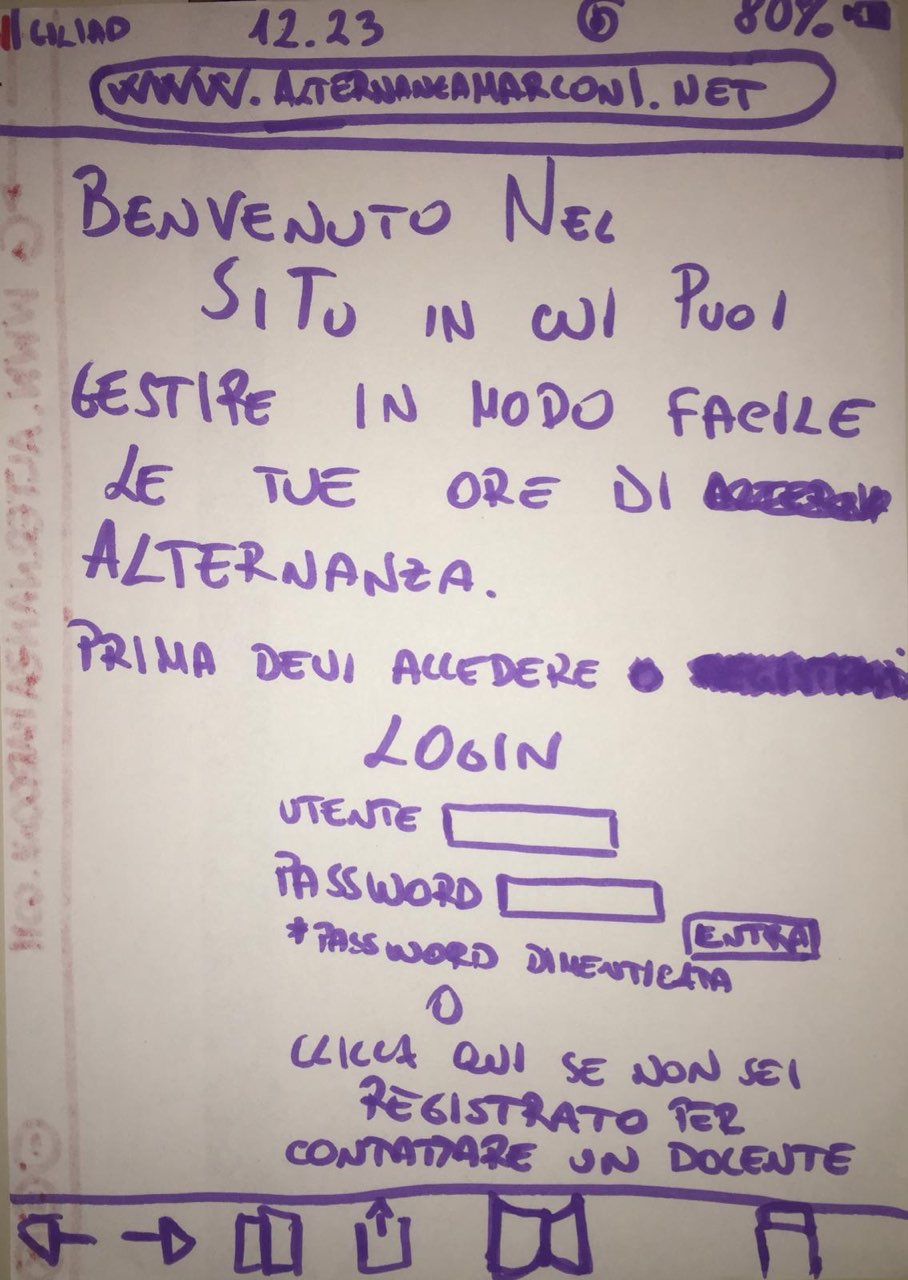 GILIAD 12.23 80%
WWW.ALTERNANZAMARCONI.NET
BENVENUTO NEL
SITO IN CUI PUOI
GESTIRE IN MODO FACILE
LE TUE ORE DI
ALTERNANZA.
PRIMA DEVI ACCEDERE
LOGIN
UTENTE
PASSWORD
ENTRA
*PASSWORD DIMENTICATA
O
CLICCA QUI SE NON SEI
REGISTRATO PER
CONTATTARE UN DOCENTE